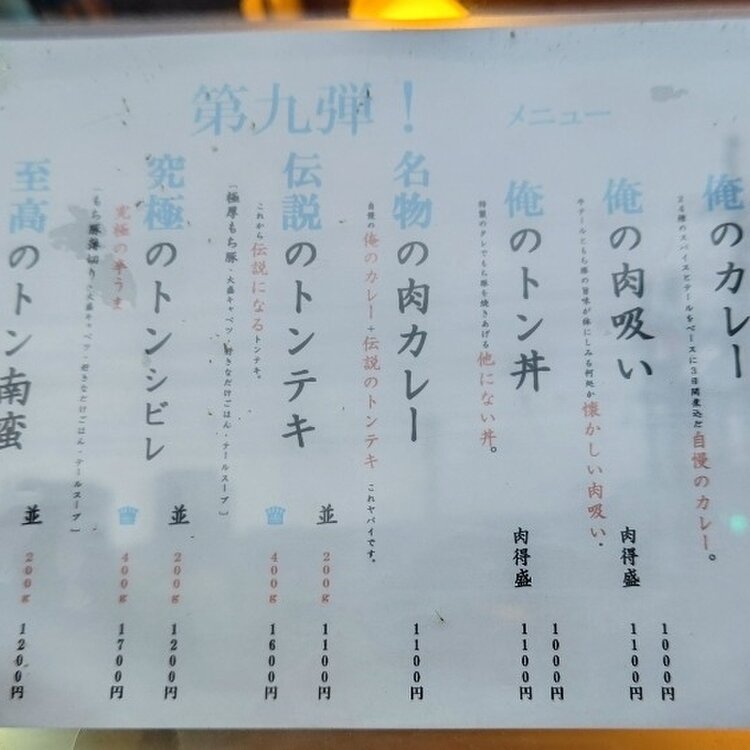 第九弾!
メニュー
俺のカレー
24種のスパイスとテールをベースに3日間煮込だ自慢のカレー。
俺の肉吸い
牛テールともち豚の旨味が体にしみる何処か懐かしい肉吸い.
1000円
肉得盛 1100円
俺のトン丼
特製のタレでもち豚を焼きあげる他にない丼。
1000円
肉得盛 1100円
名物の肉カレー
自慢の俺のカレー+伝説のトンテキ これヤバイです。
1100円
伝説のトンテキ
これから伝説になるトンテキ。
並 200g 1100円
400g 1600円
[極厚もち豚・大盛キャベツ・好きなだけごはん・テールスープ]
究極のトンシビレ
究極の辛うま
並 200g 1200円
400g 1700円
[もち豚薄切り・大盛キャベツ・好きなだけごはん・テールスープ]
至高のトン南蛮
並 200g 1200円